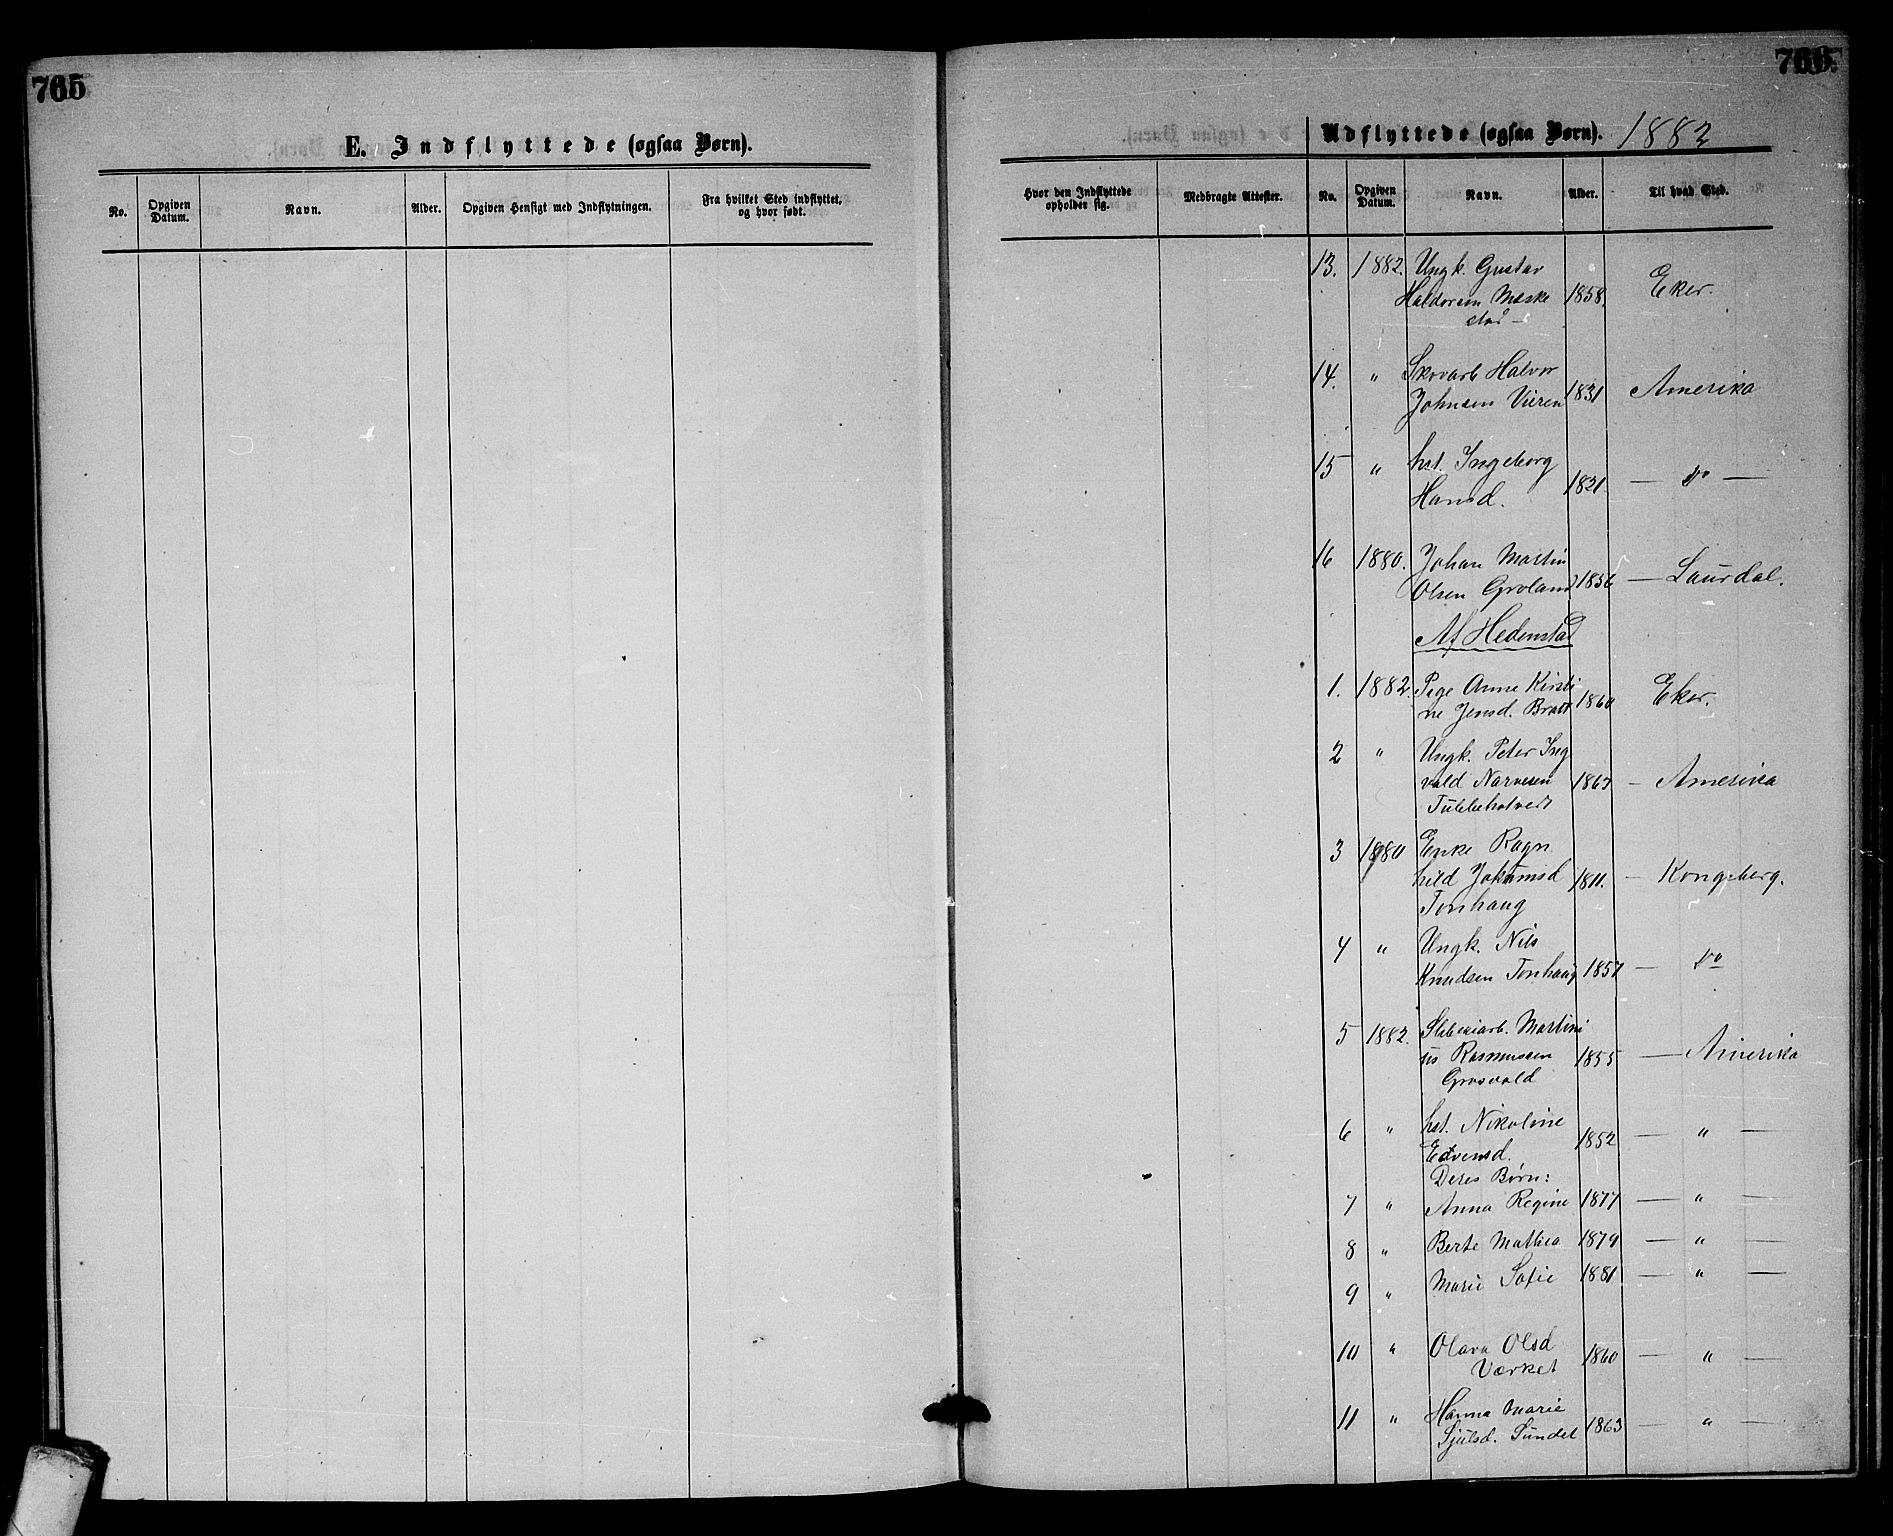 765
E. Indflyttede (ogsaa Børn).
No. Opgiven Datum. Navn. Alder. Opgiven Hensigt med Indflytningen. Fra hvilket Sted indflyttet, og hvor født.
Udflyttede (ogsaa Børn). 1882
Hvor den Indflyttede opholder sig. Medbragte Attester. No. Opgiven Datum. Navn. Alder. Til hvad Sted.
13. 1882. Ungk. Gustav
Haldorsen Mæske 1858. Eker.
stad –
14. " Skovarb Halvor
Johnsen Viiren 1831 Amerika
15 " hst. Ingeborg
Hansd. 1821 — do —
16 1880. Johan Martin
Olsen Groland 1856 — Laurdal.
Af Hedenstad
1. 1882. Pige Anne Kirsti
ne Jensd. 1860 Eker.
2 " Ungk. Peter Ing
vald Narvesen 1863 – Amerika
Tubbeholvedt
3 1880 Enke Ragn
hild 1811. – Kongsberg.
Tonhaug
4 " Ungk. Nils
Knudsen Tonhaug 1857 — do
5 1882. Martini
us Rasmussen 1855 — Amerika
Grosvold
6 " hst. Nikoline
Edvensd. 1852 — " —
Deres Børn:
7 " Anna Regine 1877 — " —
8 " Berte Mathea 1879 — " —
9 " Marie Sofie 1881 — " —
10 " Olava Olsd
Værket 1860 — " —
11 " Hanna Marie
Sjulsd. Sundet 1863 — " —